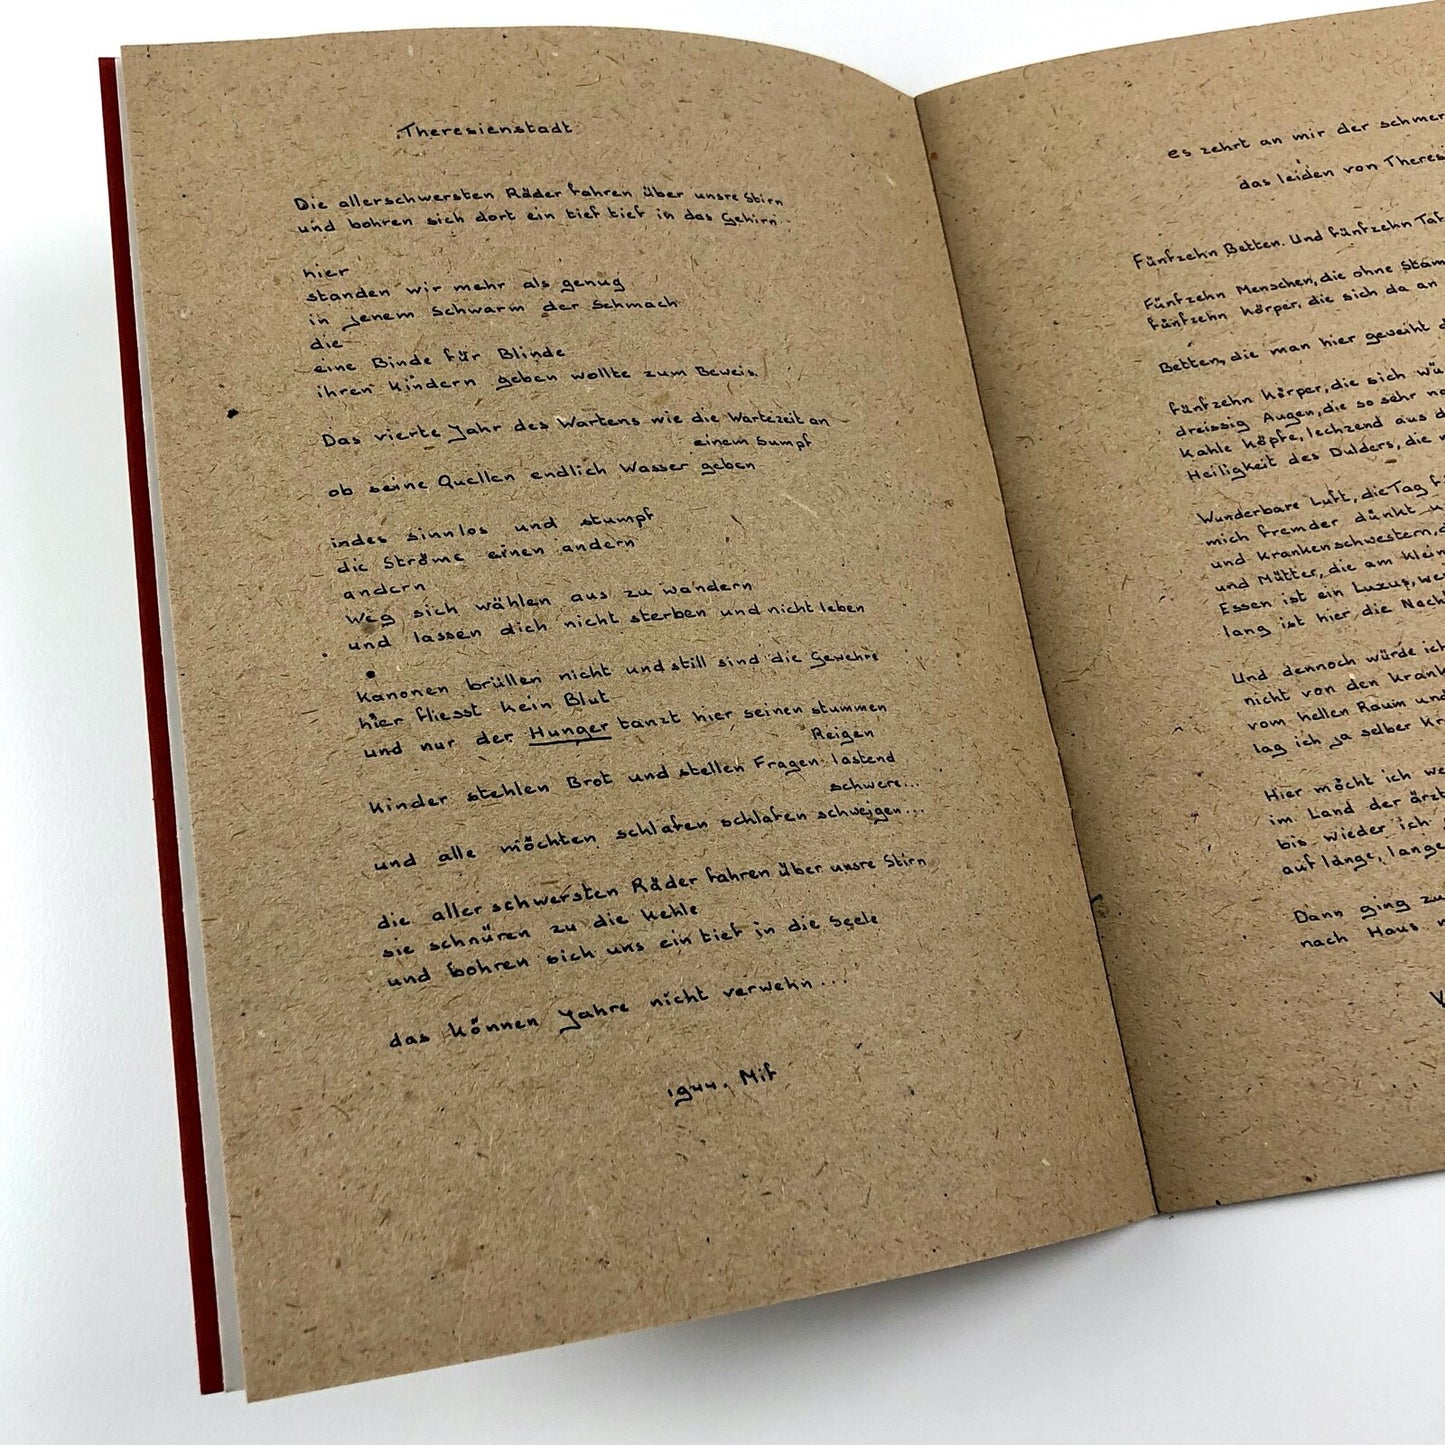 Theresienstadt
Die allerschwersten Räder fahren über unsre Stirn
und bohren sich dort ein tief tief in das Gehirn..
hier
standen wir mehr als genug
in jenem Schwarm der Schmach
die
eine Binde für Blinde
ihren Kindern geben wollte zum Beweis.
Das vierte Jahr des Wartens wie die Wartezeit an
einem Sumpf
ob seine Quellen endlich Wasser geben
indes sinnlos und stumpf
die Ströme einen andern
andern
Weg sich wählen aus zu wandern
und lassen dich nicht sterben und nicht leben
Kanonen brüllen nicht und still sind die Gewehre
hier fliesst kein Blut
und nur der Hunger tanzt hier seinen stummen
Reigen
Kinder stehlen Brot und stellen Fragen lastend
schwere...
und alle möchten schlafen schlafen schweigen...
die allerschwersten Räder fahren über unsre Stirn
sie schnüren zu die Kehle
und bohren sich uns ein tief in die Seele
das können Jahre nicht verwehn...
1944. Mif
es zehrt an mir der schmer
das leiden von Theresi
Fünfzehn Betten. Und fünfzehn Taf
Fünfzehn Menschen, die ohne Stam
fünfzehn Körper, die sich da an
Betten, die man hier geweiht d
fünfzehn Körper, die sich wü
dreissig Augen, die so sehr na
Kahle Köpfe, lechzend aus d
Heiligkeit des Dulders, die w
Wunderbare Luft, die Tag f
mich fremder dünkt u
und Krankenschwestern, d
und Mütter, die am Klein
Essen ist ein Luxus, wei
lang ist hier die Nach
Und dennoch würde ich
nicht von den Krank
vom hellen Raum und
lag ich ja selber Kr
Hier möcht ich we
im Land der ärzt
bis wieder ich
auf lange, lange
Dann ging zu
nach Haus n